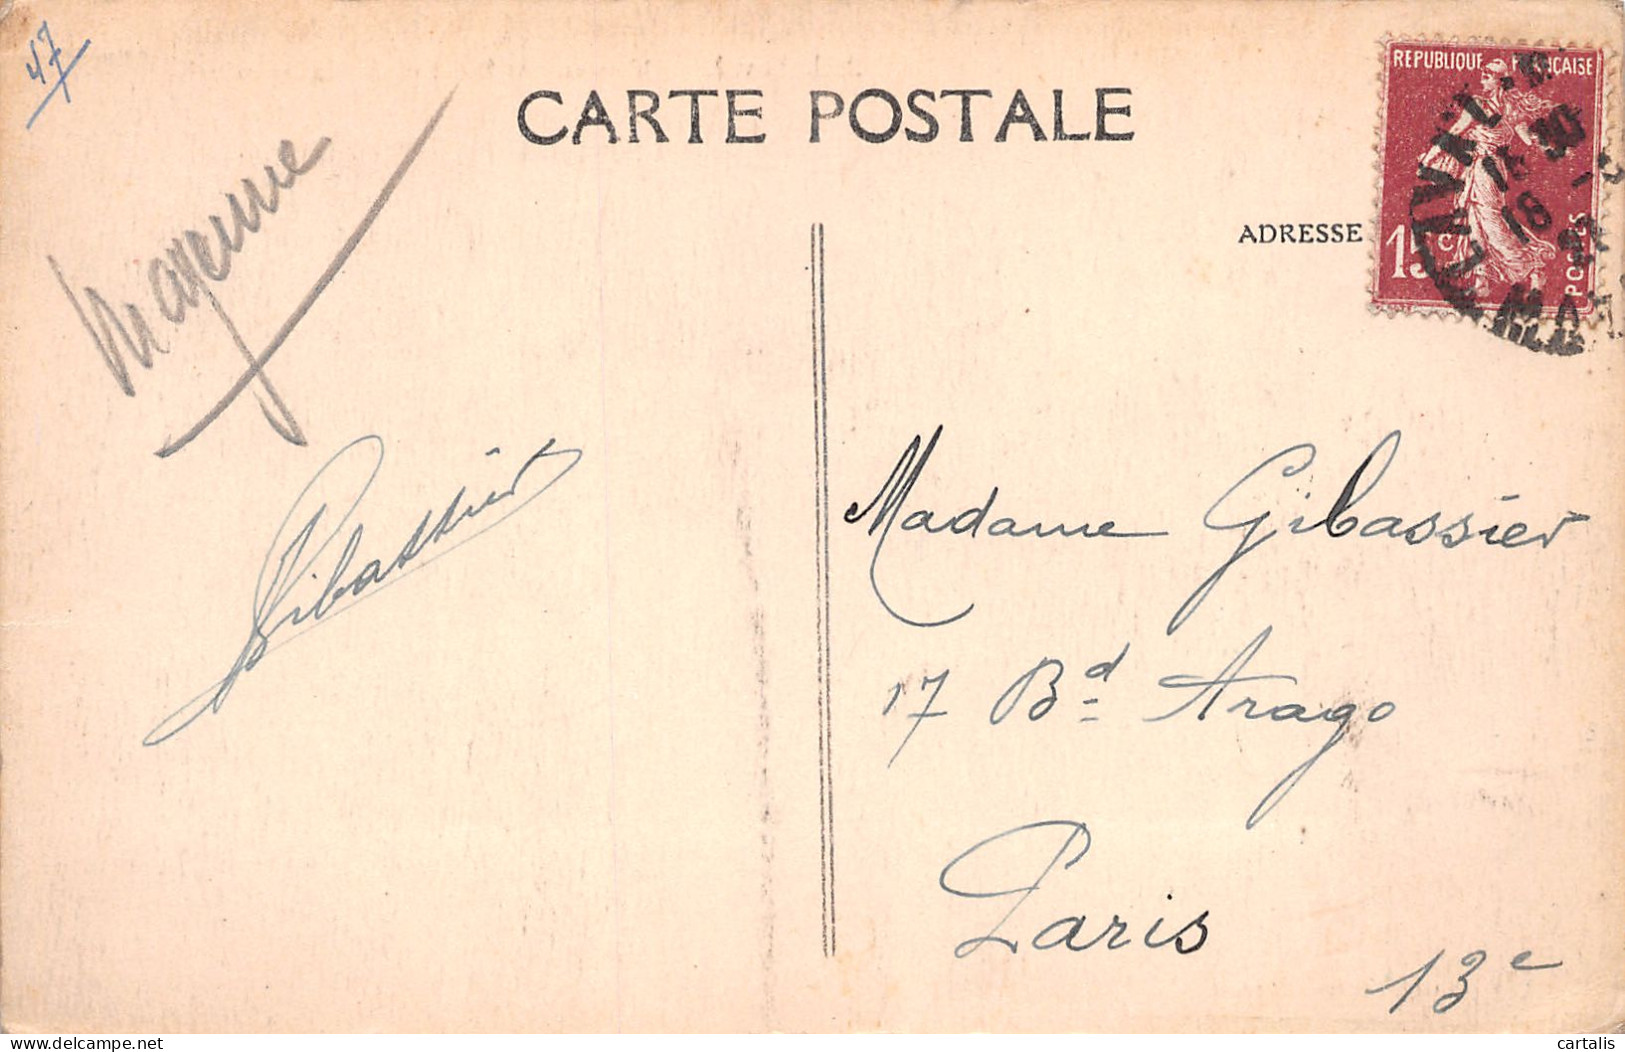 47
CARTE POSTALE
REPUBLIQUE FRANÇAISE
15c
POSTES
18
Mayenne
ADRESSE
Gibassier
Madame Gibassier
17 Bd Arago
Paris
13e
delcampe.net
cartalis